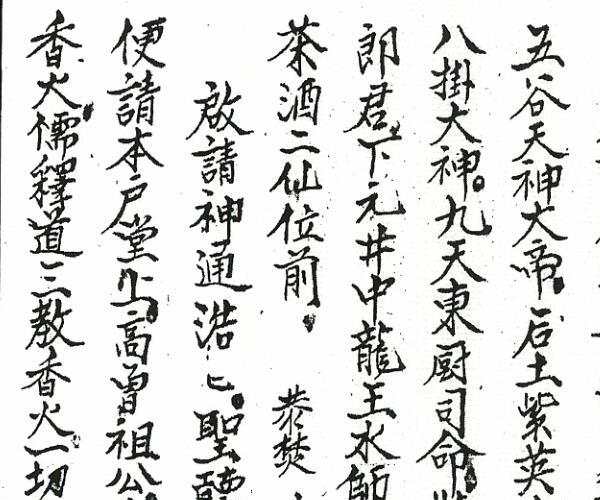 五谷天神大帝。后土紫英
八掛大神。九天東厨司命
郎君。下元井中龍王水
茶酒二仙位前。 恭焚
啟請神通浩匕。聖
便請本戶堂上。高曾祖公
香火。儒釋道三教香火一切